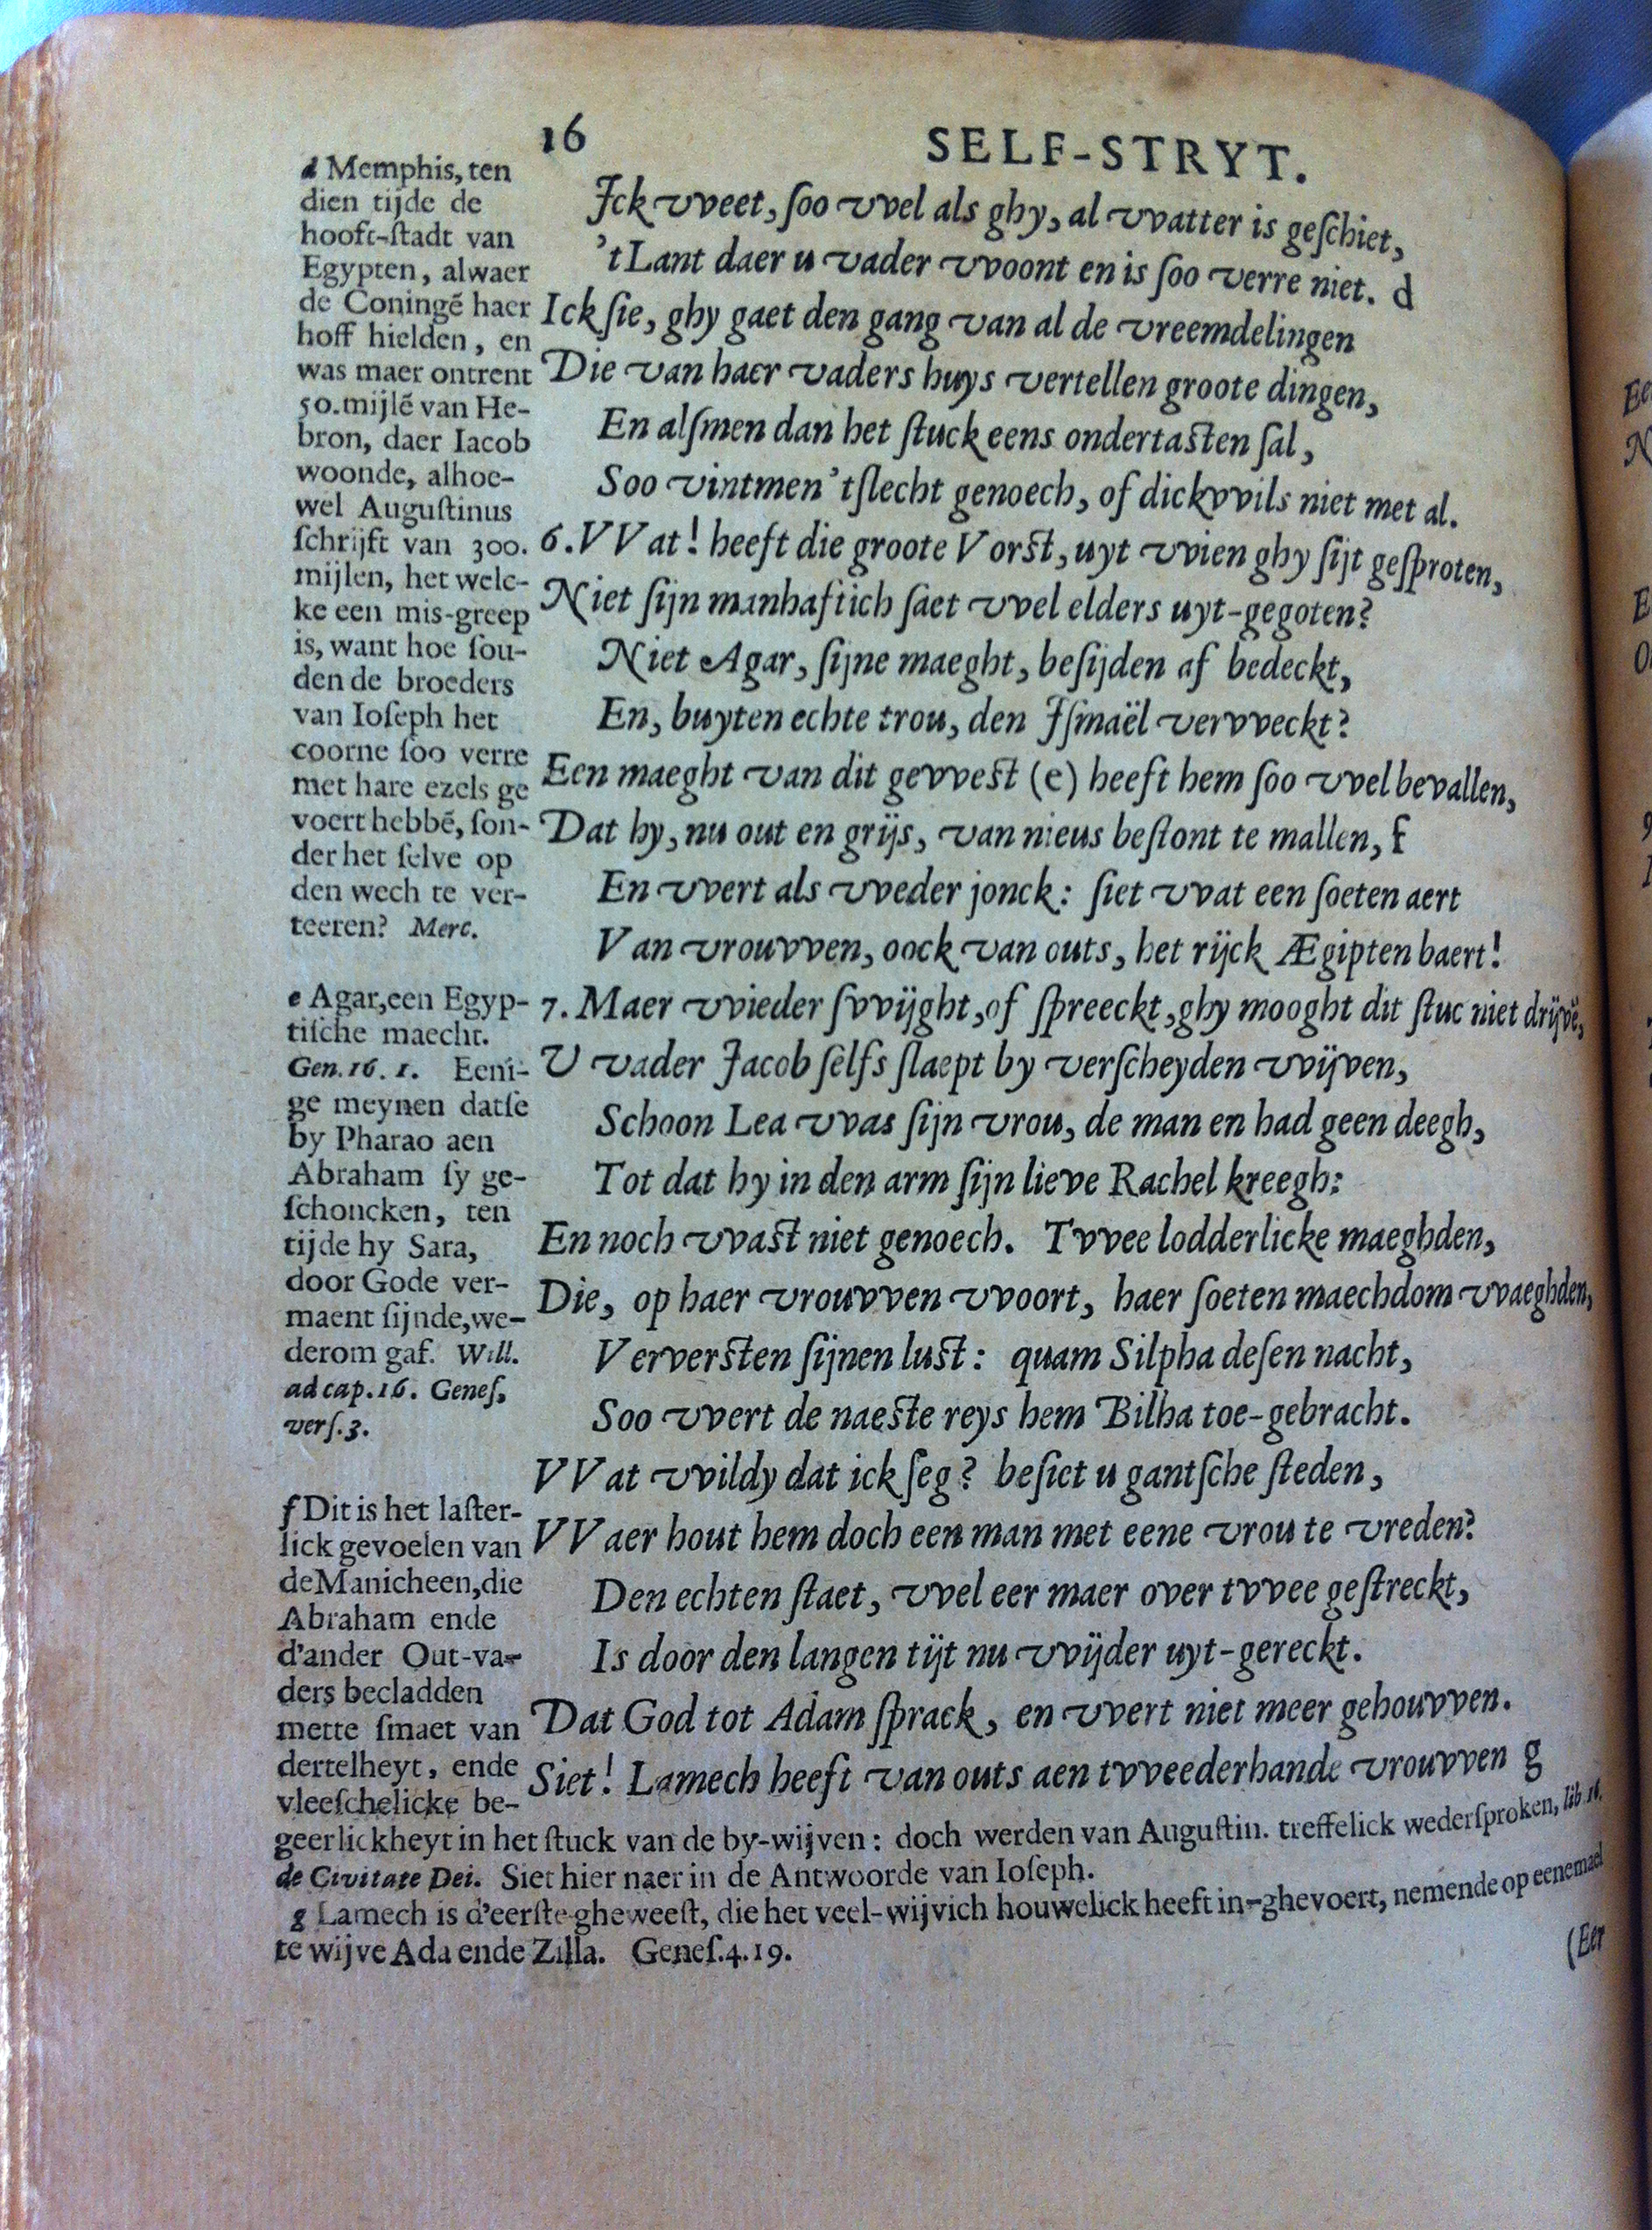 16
SELF-STRYT.
Ick vveet, ſoo vvel als ghy, al vvatter is geſchiet,
't Lant daer u vader vvoont en is ſoo verre niet. d
Ick ſie, ghy gaet den gang van al de vreemdelingen
Die van haer vaders huys vertellen groote dingen,
En alſmen dan het ſtuck eens ondertaſten ſal,
Soo vintmen 't ſlecht genoech, of dickvvils niet met al.
6. VVat! heeft die groote Vorſt, uyt vvien ghy ſijt geſproten,
Niet ſijn manhaftich ſaet vvel elders uyt-gegoten?
Niet Agar, ſijne maeght, beſijden af bedeckt,
En, buyten echte trou, den Iſmaël vervveckt?
Een maeght van dit gevveſt (e) heeft hem ſoo vvel bevallen,
Dat hy, nu out en grijs, van nieus beſtont te mallen, f
En vvert als vveder jonck: ſiet vvat een ſoeten aert
Van vrouvven, oock van outs, het rijck Ægipten baert!
7. Maer vvieder ſvvijght, of ſpreeckt, ghy mooght dit ſtuc niet drijvē,
U vader Jacob ſelfs ſlaept by verſcheyden vvijven,
Schoon Lea vvas ſijn vrou, de man en had geen deegh,
Tot dat hy in den arm ſijn lieve Rachel kreegh:
En noch vvaſt niet genoech. Tvvee lodderlicke maeghden,
Die, op haer vrouvven vvoort, haer ſoeten maechdom vvaeghden,
Ververſten ſijnen luſt: quam Silpha deſen nacht,
Soo vvert de naeſte reys hem Bilha toe-gebracht.
VVat vvildy dat ick ſeg? beſiet u gantſche ſteden,
VVaer hout hem doch een man met eene vrou te vreden?
Den echten ſtaet, vvel eer maer over tvvee geſtreckt,
Is door den langen tijt nu vvijder uyt-gereckt.
Dat God tot Adam ſprack, en vvert niet meer gehouvven.
Siet! Lamech heeft van outs aen tvveederhande vrouvven g
d Memphis, ten
dien tijde de
hooft-ſtadt van
Egypten, alwaer
de Coningē haer
hoff hielden, en
was maer ontrent
50. mijlē van He-
bron, daer Iacob
woonde, alhoe-
wel Auguſtinus
ſchrijft van 300.
mijlen, het welc-
ke een mis-greep
is, want hoe ſou-
den de broeders
van Ioſeph het
coorne ſoo verre
met hare ezels ge
voert hebbē, ſon-
der het ſelve op
den wech te ver-
teeren? Merc.
e Agar, een Egyp-
tiſche maecht.
Gen. 16. 1. Eeni-
ge meynen datſe
by Pharao aen
Abraham ſy ge-
ſchoncken, ten
tijde hy Sara,
door Gode ver-
maent ſijnde, we-
derom gaf. Will.
ad cap. 16. Geneſ,
verſ. 3.
f Dit is het laſter-
lick gevoelen van
de Manicheen, die
Abraham ende
d'ander Out-va-
ders becladden
mette ſmaet van
dertelheyt, ende
vleeſchelicke be-
geerlickheyt in het ſtuck van de by-wijven: doch werden van Auguſtin. treffelick wederſproken, lib. 16.
de Civitate Dei. Siet hier naer in de Antwoorde van Ioſeph.
g Lamech is d'eerſte gheweeſt, die het veel-wijvich houwelick heeft in-ghevoert, nemende op eenemael
te wijve Ada ende Zilla. Geneſ. 4. 19.
(Eer